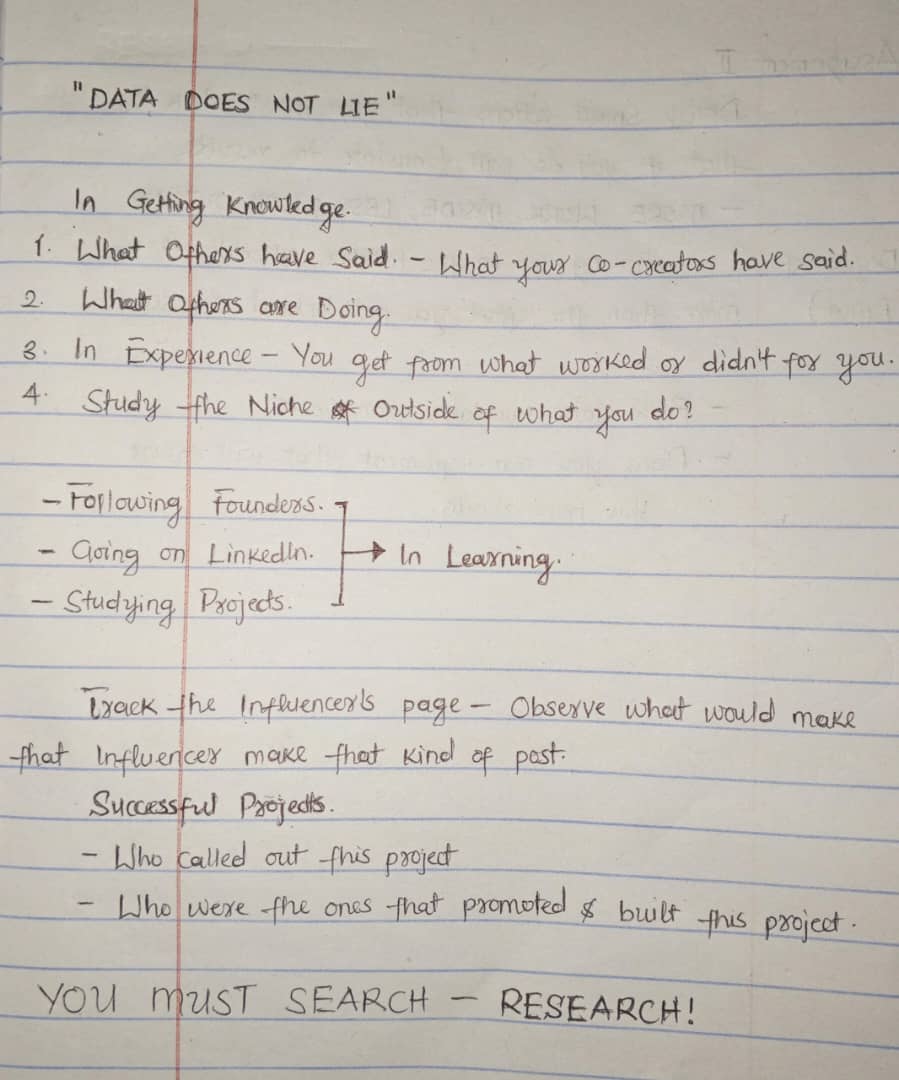 "DATA DOES NOT LIE"
In Getting Knowledge.
1. What Others have Said. - What your Co-creators have said.
2. What Others are Doing.
3. In Experience - You get from what worked or didn't for you.
4. Study the Niche of Outside of what you do?
- Following Founders.
- Going on LinkedIn. → In Learning.
- Studying Projects.
Track the Influencer's page - Observe what would make
that Influencer make that kind of post.
Successful Projects.
- Who called out this project
- Who were the ones that promoted & built this project.
YOU MUST SEARCH - RESEARCH!